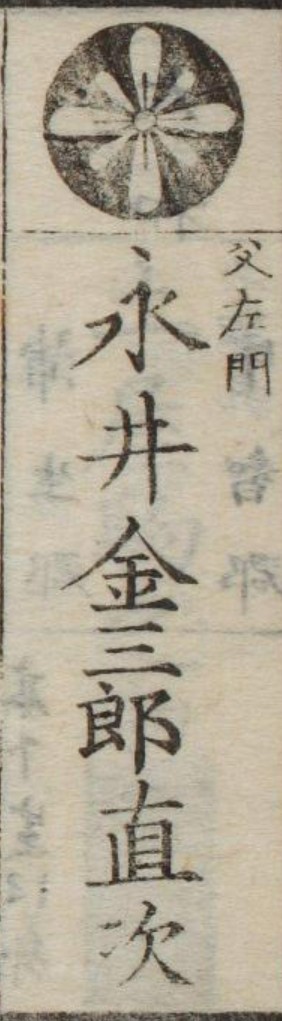 父左門
永井金三郎直次